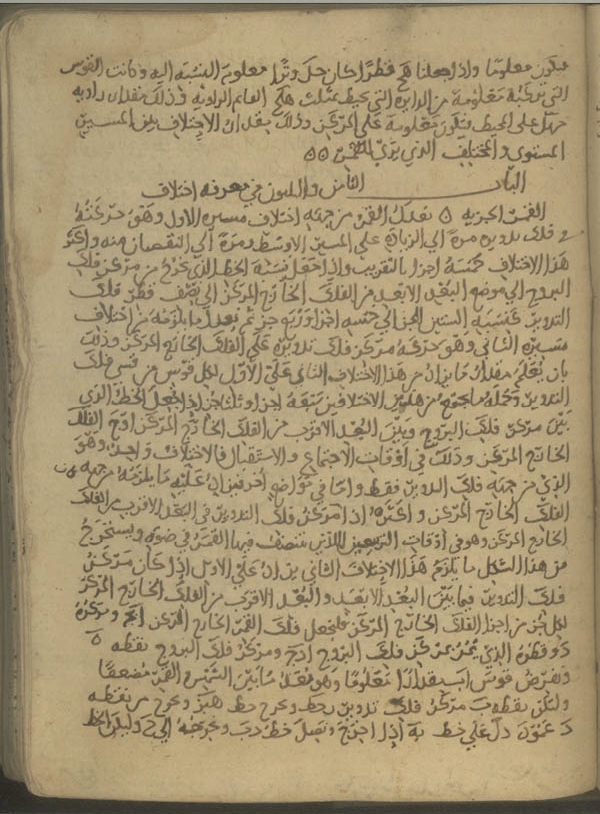 فيكون معلوما واذا جعلنا هح قطرا كان حل وترا معلوم النسبة اليه وكانت القوس
التي تركبه معلومة من الدايرة التي تحيط بمثلث هلح القايم الزاويه فذلك مقدار زاويه
على المحيط وتكون معلومة على المركز وذلك بقدر الاختلاف بين المسير
المستوي والمختلف الذي يرى للشمس
الباب الثامن والثلثون في معرفه اختلاف
القمر الجزيه تعديل القمر من جهة اختلاف مسيره الاول وهو حركته
في فلك تدويره مرة الي الزيادة على المسير الاوسط ومرة الي النقصان منه واكثر
هذا الاختلاف خمسة اجزا بالتقريب واذا جعل نسبة الخط الذي يخرج من مركز فلك
البروج الي موضع البعد الابعد من الفلك الخارج المركز الي نصف قطر فلك
التدوير كنسبة الستين الجز الي خمسه اجزا وربع جز ثم بعد ما يلزمه من اختلاف
مسيره الثاني وهو حركة مركز فلك تدويره على الفلك الخارج المركز وذلك
بان يعلم مقدار ما يزاد من هذا الاختلاف الثاني على الاول لكل قوس من قسي فلك
التدوير وجملة ما يجتمع من هذين الاختلافين سبعة اجزا وثلثا جز اذا جعل الخط الذي
بين مركز فلك البروج وبين البعد الاقرب من الفلك الخارج المركز اوج الفلك
الخارج المركز وذلك في اوقات الاجتماع والاستقبال فالاختلاف واحد وهو
الذي من جهة فلك التدوير فقط واما في مواضع اخر فيزاد عليه ما يلزمه من جهة
الفلك الخارج المركز واكثره اذا مركز فلك التدوير في البعد الاقرب من الفلك
الخارج المركز وهو في اوقات التربيعين اللذين ينتصف فيها القمر في ضوه ويستخرج
من هذا الشكل ما يلزم هذا الاختلاف الثاني يزاد على الاول اذا كان مركز
فلك التدوير فيما بين البعد الابعد والبعد الاقرب من الفلك الخارج المركز
لكل جز من اجزا الفلك الخارج المركز فلنجعل فلك القمر الخارج المركز ابج ومركزه
د وقطره الذي يمر بمركز فلك البروج ادج ومركز فلك البروج نقطه ه
ونفرض قوس اب مقدارا معلوما وهو بعد ما بين الشمس القمر مضعفا
وليكن نقطه ب مركز فلك تدوير وخرج خط هبز ونخرج من نقطه
د عمود دل على خط به اذا اخرج ونصل خط دب ونخرجه الي ح وليكن الخط